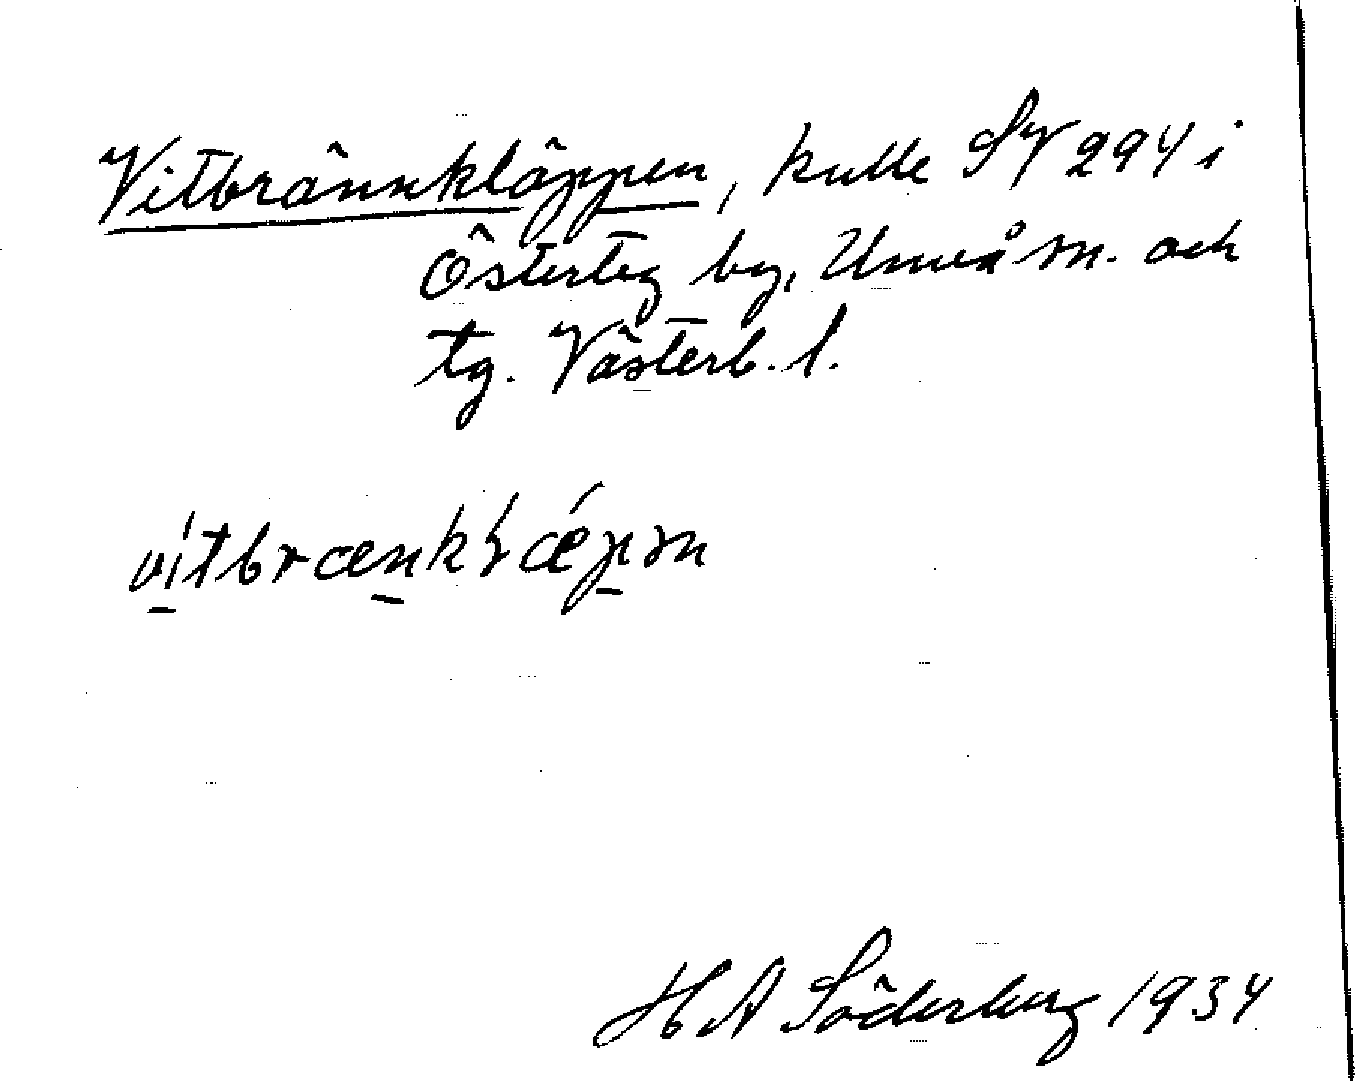 Vitbrännkläppen, kulle SV 294 i
Österteg by, Umeå sn. och
tg. Västerb. l.
ví̲tbræn̲kɬǽp̲ən
H A Söderberg 1934